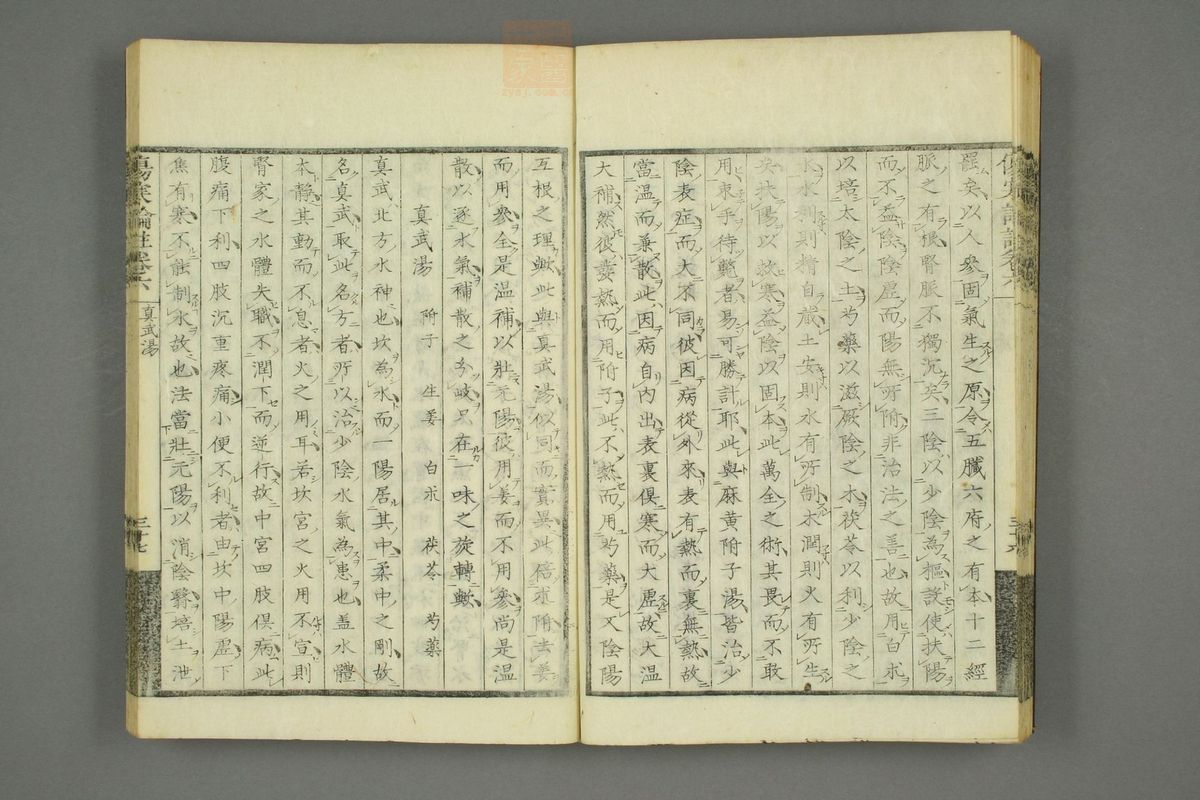 羅矣以人參固氣生之原令五臟六府之有本十二經
脈之有根腎脈不獨沉矣三陰以少陰為樞設使扶陽
而不益陰陰虛而陽無所附非治法之善也故用白朮
以培太陰之土芍藥以滋厥陰之木茯苓以利少陰之
水水利則精自藏土安則水有所制木潤則火有所生
矣扶陽以救寒益陰以固本此萬全之術其畏而不敢
用束手待斃者易可勝計耶此與麻黃附子湯皆治少
陰表症而大不同彼因病從外來表有熱而裏無熱故
當溫而兼散此因病自內出表裏俱寒而大虛故大溫
大補然彼發熱而用附子此不熱而用芍藥是又陰陽
互根之理歟此與真武湯似同而實異此倍朮附去姜
而用參全是溫補以壯元陽彼用姜而不用參尚是溫
散以逐水氣補散之分岐只在一味之旋轉歟
真武湯 附子 生姜 白朮 茯苓 芍藥
真武北方水神也坎為水而一陽居其中柔中之剛故
名真武取此名方者所以治少陰水氣為患也盖水體
本靜其動而不息者火之用耳若坎宮之火用不宣則
腎家之水體失職不潤下而逆行故中宮四肢俱病此
腹痛下利四肢沉重疼痛小便不利者由坎中陽虛下
焦有寒不能制水故也法當壯元陽以消陰翳培土泄
傷寒論註卷六
真武湯
三十七